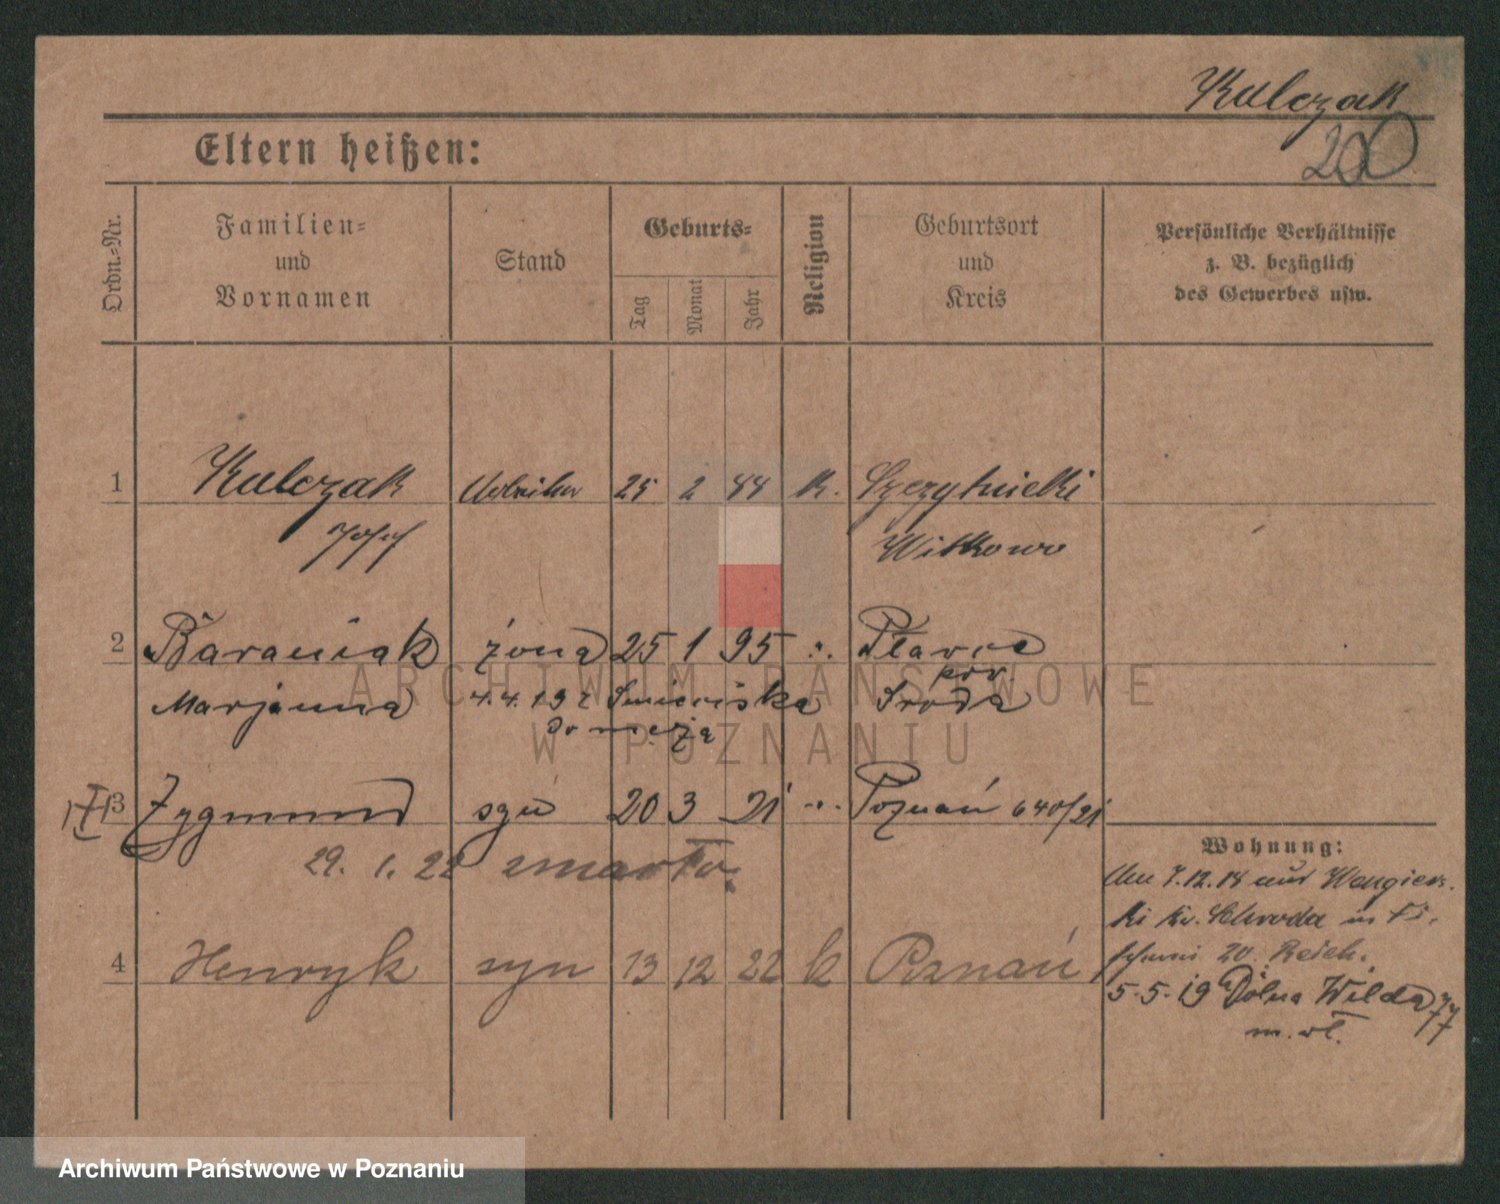 Kulczak
200
Eltern heißen:
Ordn.-Nr.
Familien-
und
Vornamen
Stand
Geburts-
Tag
Monat
Jahr
Religion
Geburtsort
und
Kreis
Persönliche Verhältnisse
z. B. bezüglich
des Gewerbes usw.
1 Kulczak 25 2 44 K.
Josef Witkowo
2 Baraniak żona 25 1 95 Pławce
pow.
Marjanna 4.4.192 Środa
do męża
3 Zygmund syn 20 3 21 Poznań 640/21
29. 1. 22 zmarł
4 Henryk syn 13 12 22 k Poznań
Wohnung:
7.12.18 aus
Kr. Schroda in
20. Reich.
5.5.19 Dolna Wilda 77
m. wł.
ARCHIWUM PAŃSTWOWE
W POZNANIU
Archiwum Państwowe w Poznaniu